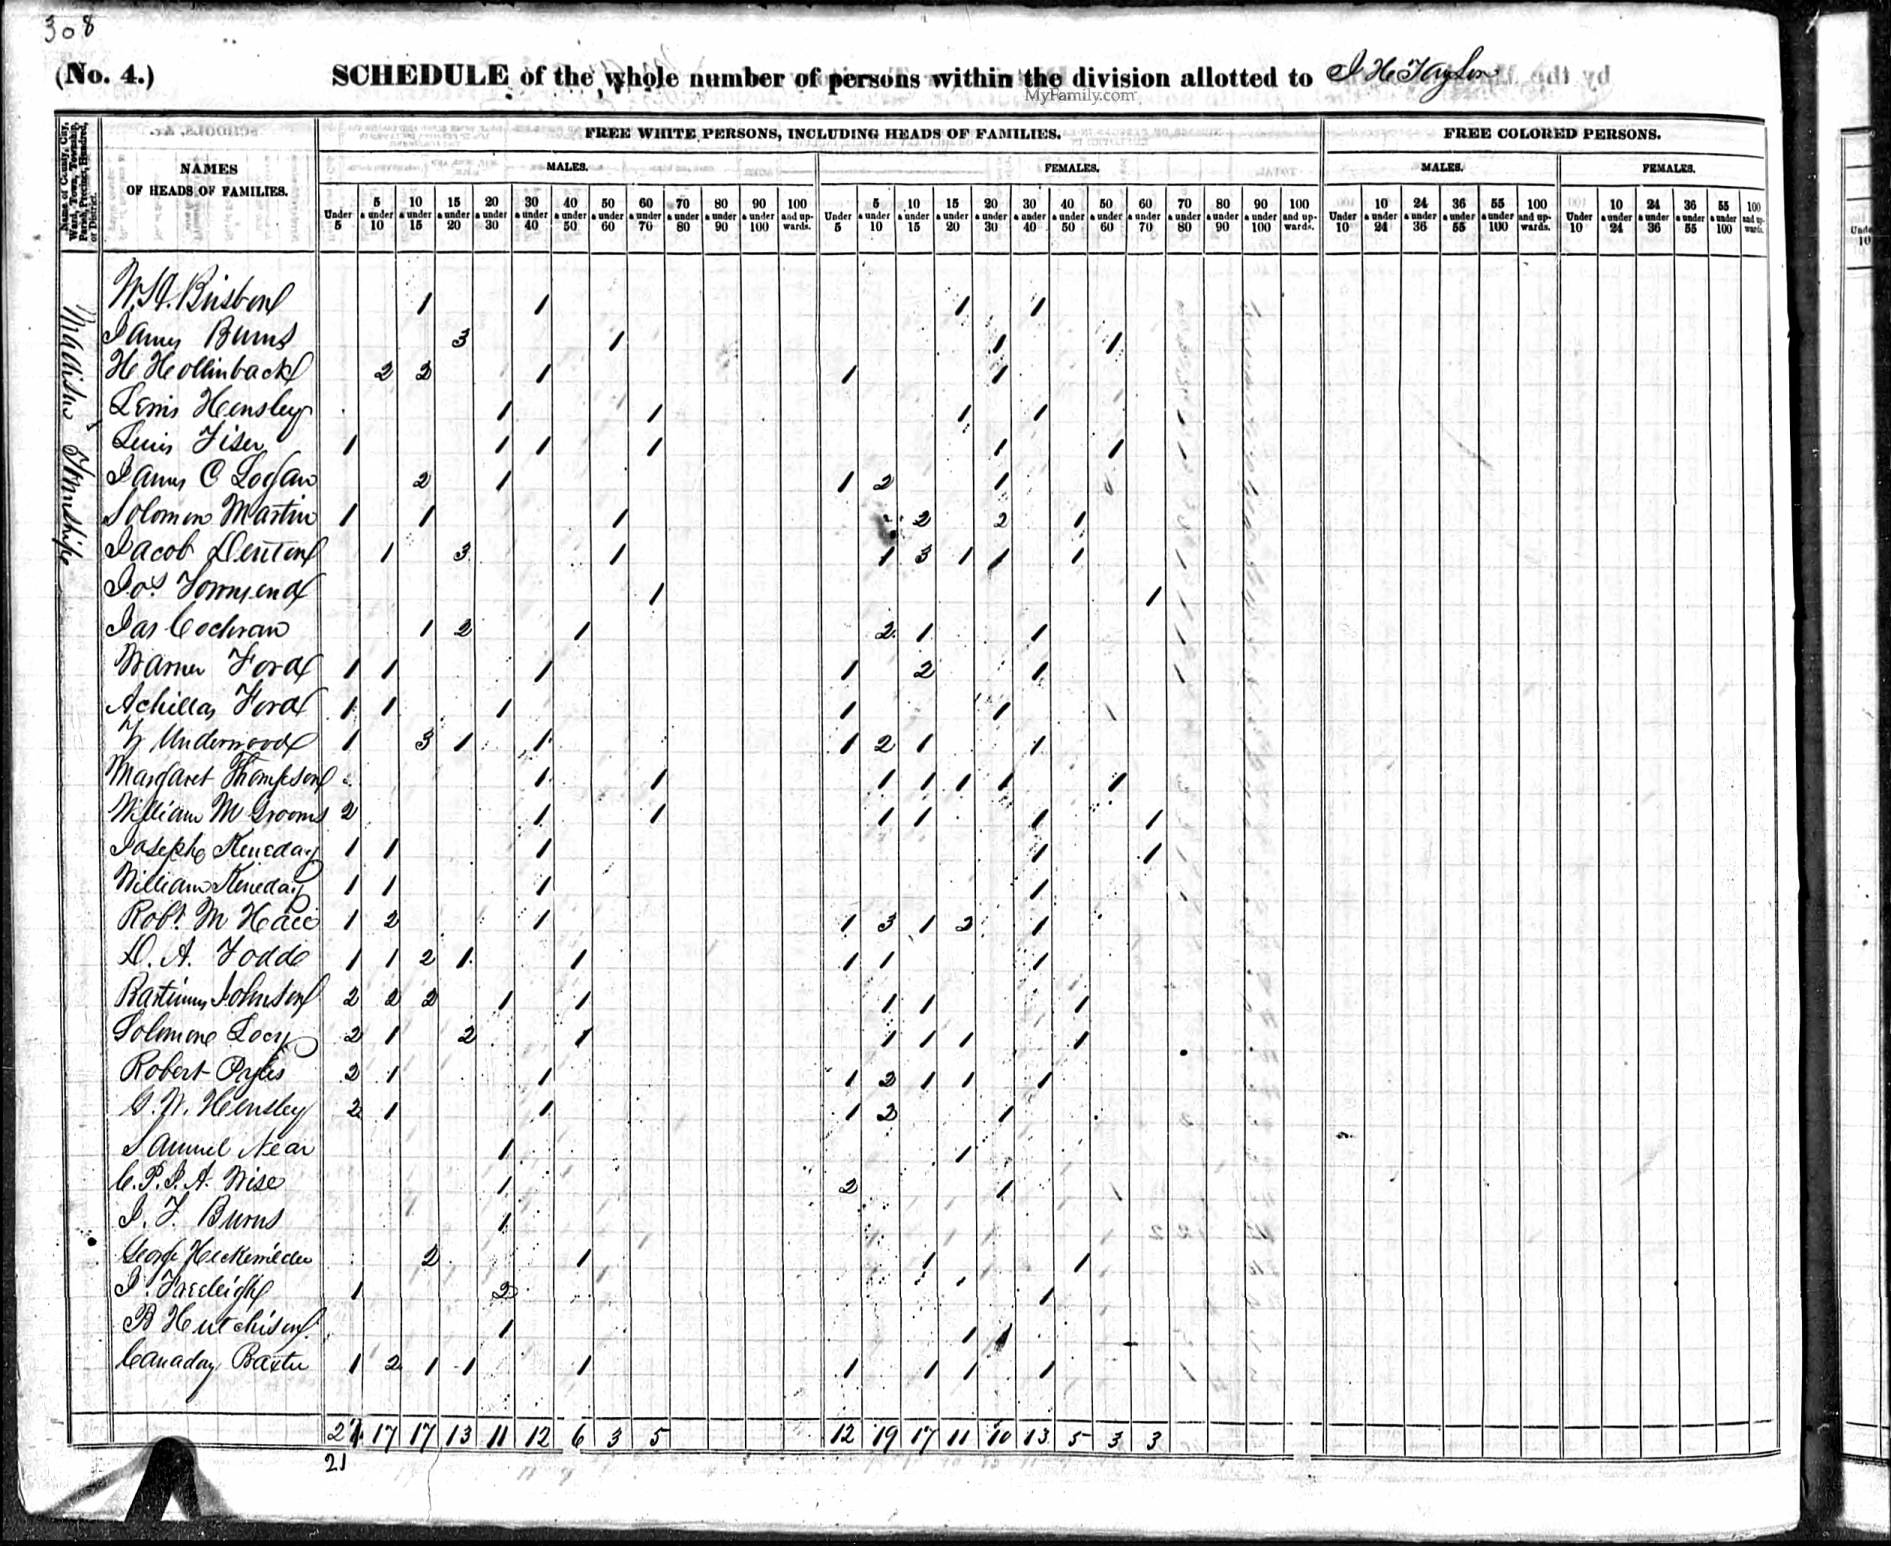 308
(No. 4.) SCHEDULE of the whole number of persons within the division allotted to I H Taylor
MyFamily.com
Name of County, City, Ward, Town, Township, Parish, Precinct, Hundred, or District.
NAMES OF HEADS OF FAMILIES.
FREE WHITE PERSONS, INCLUDING HEADS OF FAMILIES.
FREE COLORED PERSONS.
MALES. FEMALES. MALES. FEMALES.
Under 5 | 5 & under 10 | 10 & under 15 | 15 & under 20 | 20 & under 30 | 30 & under 40 | 40 & under 50 | 50 & under 60 | 60 & under 70 | 70 & under 80 | 80 & under 90 | 90 & under 100 | 100 and upwards. | Under 5 | 5 & under 10 | 10 & under 15 | 15 & under 20 | 20 & under 30 | 30 & under 40 | 40 & under 50 | 50 & under 60 | 60 & under 70 | 70 & under 80 | 80 & under 90 | 90 & under 100 | 100 and upwards. | Under 10 | 10 & under 24 | 24 & under 36 | 36 & under 55 | 55 & under 100 | 100 and upwards. | Under 10 | 10 & under 24 | 24 & under 36 | 36 & under 55 | 55 & under 100 | 100 and upwards.
Township
Brisbon 1 1 1 1
James Burns 3 1 1 1
H Hollinback 2 2 1 1 1
Lewis Hensley 1 1 1 1
Lewis Fiser 1 1 1 1 1 1
James C Logan 2 1 1 2 1
Solomon Martin 1 1 1 2 2 1
Jacob Denton 1 3 1 1 3 1 1 1
Jos Townsend 1 1
Jas Cochran 1 2 1 2 1 1
Warner Ford 1 1 1 1 2 1
Achillas Ford 1 1 1 1 1
Underwood 1 3 1 1 1 2 1 1
Margaret Thompson 1 1 1 1 1 1 1
William M Grooms 2 1 1 1 1 1 1
Joseph Keneday 1 1 1 1 1
William Keneday 1 1 1 1
Robt. M 1 2 1 1 3 1 2 1
D. A. Todd 1 1 2 1 1 1 1 1
Johnson 2 2 2 1 1 1 1 1
Solomon Locy 2 1 2 1 1 1 1 1
Robert Pyles 2 1 1 1 2 1 1 1
G. W. Hensley 2 1 1 1 2 1
Samuel Near 1 1
C. P. J. A. Wise 1 2 1
J. F. Burns 1
George 2 1 1 1
J. Farleigh 1 2 1
B Hutchison 1 1 1
Canaday Baxter 1 2 1 1 1 1 1 1 1
17 17 13 11 12 6 3 5 12 19 17 11 10 13 5 3 3
21